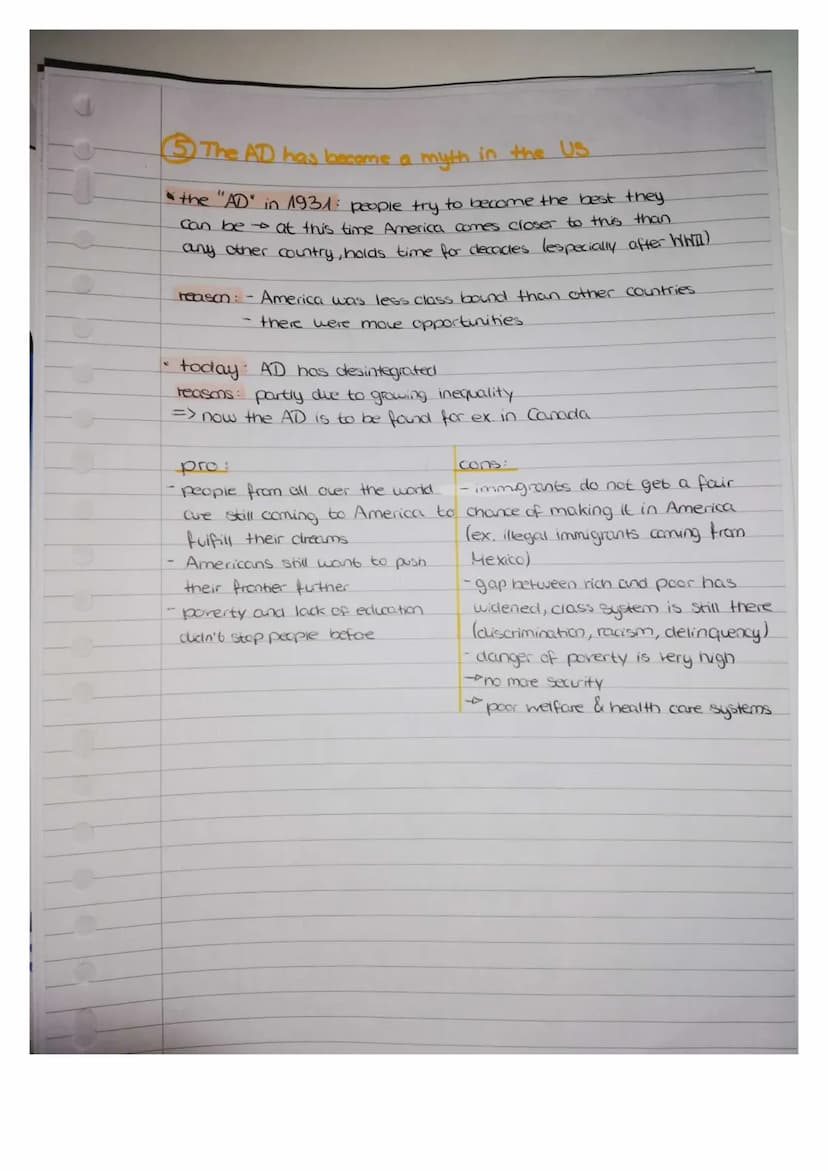 ⑤ The AD has become a myth in the US
• the "AD" in 1931: people try to become the best they
can be → at this time America comes closer to this than
any other country, holds time for decades (especially after WWII)
reason: - America was less class bound than other countries
- there were more opportunities
• today: AD has desintegrated
reasons: partly due to growing inequality
=> now the AD is to be found for ex. in Canada
pro:
- people from all over the world
are still coming to America to
fulfill their dreams
- Americans still want to push
their frontier futher
- poverty and lack of education
didn't stop people before
cons:
- immigrants do not get a fair
chance of making it in America
(ex. illegal immigrants coming from
Mexico)
- gap between rich and poor has
widened, class system is still there
(discrimination, racism, delinquency)
- danger of poverty is very high
→ no more security
→ poor welfare & health care systems